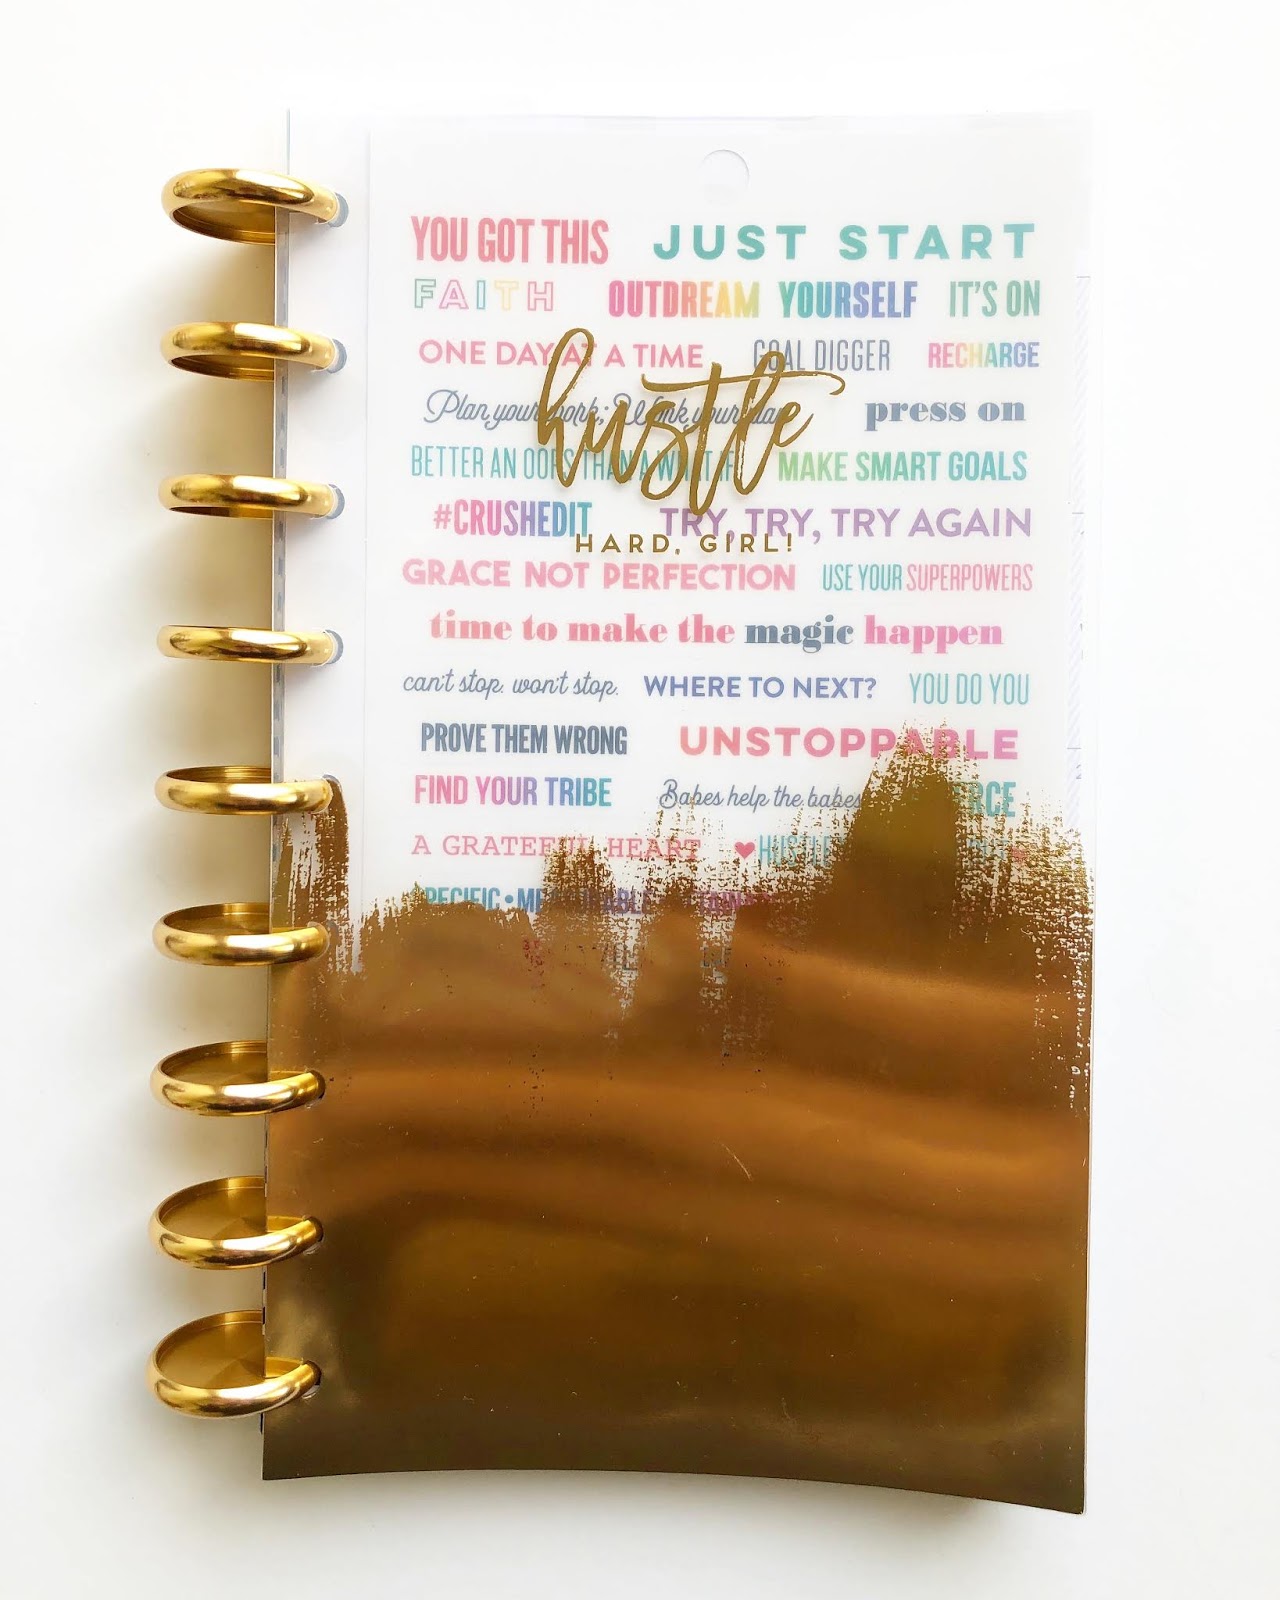 YOU GOT THIS JUST START
FAITH OUTDREAM YOURSELF IT'S ON
ONE DAY AT A TIME GOAL DIGGER RECHARGE
hustle
Plan your work; Work your plan press on
BETTER AN OOPS THAN A WHAT IF MAKE SMART GOALS
#CRUSHEDIT TRY, TRY, TRY AGAIN
HARD, GIRL!
GRACE NOT PERFECTION USE YOUR SUPERPOWERS
time to make the magic happen
can't stop. won't stop. WHERE TO NEXT? YOU DO YOU
PROVE THEM WRONG UNSTOPPABLE
FIND YOUR TRIBE Babes help the babes
A GRATEFUL HEART HUSTLE
SPECIFIC • MEASURABLE